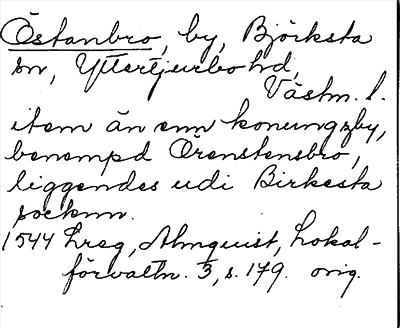 Östanbro, by, Björksta
sn, Yttertjurbo hd,
Västm. l.
item än enn konungzby,
benempd Örenstensbro,
liggendes udi Birkesta
socknn.
1544 Lreg, Almquist, Lokal-
förvaltn. 3, s. 179. orig.